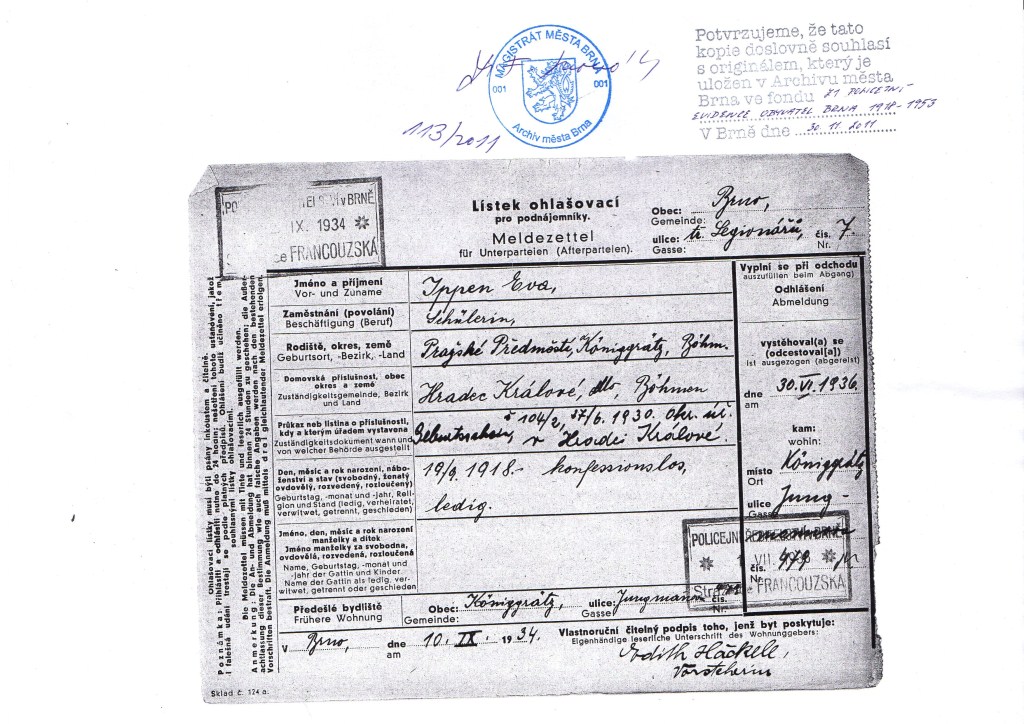 MAGISTRÁT MĚSTA BRNA
001 001
Archiv města Brna
113/2011
Potvrzujeme, že tato
kopie doslovně souhlasí
s originálem, který je
uložen v Archivu města
Brna ve fondu Z1 POLICEJNÍ
EVIDENCE OBYVATEL BRNA 1918-1953
V Brně dne 30. 11. 2011
V BRNĚ
IX. 1934
FRANCOUZSKÁ
Lístek ohlašovací
pro podnájemníky.
Meldezettel
für Unterparteien (Afterparteien).
Obec: Brno,
Gemeinde:
ulice: tř. Legionářů, čís. 7.
Gasse: Nr.
Poznámka: Přihlásiti a odhlásiti nutno do 24 hodin; nešetření tohoto ustanovení, jakož
i falešná udání trestají se podle platných předpisů. Ohlášení budiž učiněno třemi
souhlasnými lístky ohlašovacími.
Ohlašovací lístky musí býti psány inkoustem a čitelně.
Anmerkung: Die An- und Abmeldung hat binnen 24 Stunden zu geschehen; die Außer-
achtlassung dieser Bestimmung wie auch falsche Angaben werden nach den bestehenden
Vorschriften bestraft. Die Anmeldung muß mittels drei gleichlautender Meldezettel erfolgen.
Die Meldezettel müssen mit Tinte und leserlich ausgefüllt werden.
Jméno a příjmení
Vor- und Zuname
Ippen Eva,
Zaměstnání (povolání)
Beschäftigung (Beruf)
Schülerin,
Rodiště, okres, země
Geburtsort, -Bezirk, -Land
Pražské Předměstí, Königgrätz, Böhm.
Domovská příslušnost, obec
okres a země
Zuständigkeitsgemeinde, Bezirk
und Land
Hradec Králové, dto, Böhmen
Průkaz neb listina o příslušnosti,
kdy a kterým úřadem vystavena
Zuständigkeitsdokument wann und
von welcher Behörde ausgestellt
č 104/2, 1930. Okr. úř.
v Hradci Králové.
Den, měsíc a rok narození, nábo-
ženství a stav (svobodný, ženatý
ovdovělý, rozvedený, rozloučený)
Geburtstag, -monat und -jahr, Reli-
gion und Stand (ledig, verheiratet,
verwitwet, getrennt, geschieden)
19/9. 1918.- konfessionslos,
ledig.
Jméno, den, měsíc a rok narození
manželky a dítok
Jméno manželky za svobodna,
ovdovělá, rozvedená, rozloučená
Name, Geburtstag, -monat und
-jahr der Gattin und Kinder
Name der Gattin als ledig, ver-
witwet, getrennt oder geschieden
Předešlé bydliště
Frühere Wohnung
Obec: Königgrätz, ulice: Jungmann
Gemeinde: Gasse čís.
V Brno, dne 10. IX. 1934.
am
Vlastnoruční čitelný podpis toho, jenž byt poskytuje:
Eigenhändige leserliche Unterschrift des Wohnunggebers:
Edith Häckell,
Vorsteherin
Vyplní se při odchodu
auszufüllen beim Abgang)
Odhlášení
Abmeldung
vystěhoval(a) se
(odcestoval[a])
ist ausgezogen (abgereist)
dne 30. VI. 1936.
am
kam:
wohin:
místo Königgrätz
Ort
ulice Jung-
Gasse
čís. 479
Nr.
POLICEJNÍ V BRNĚ
VII.
FRANCOUZSKÁ
Sklad č. 124 a.